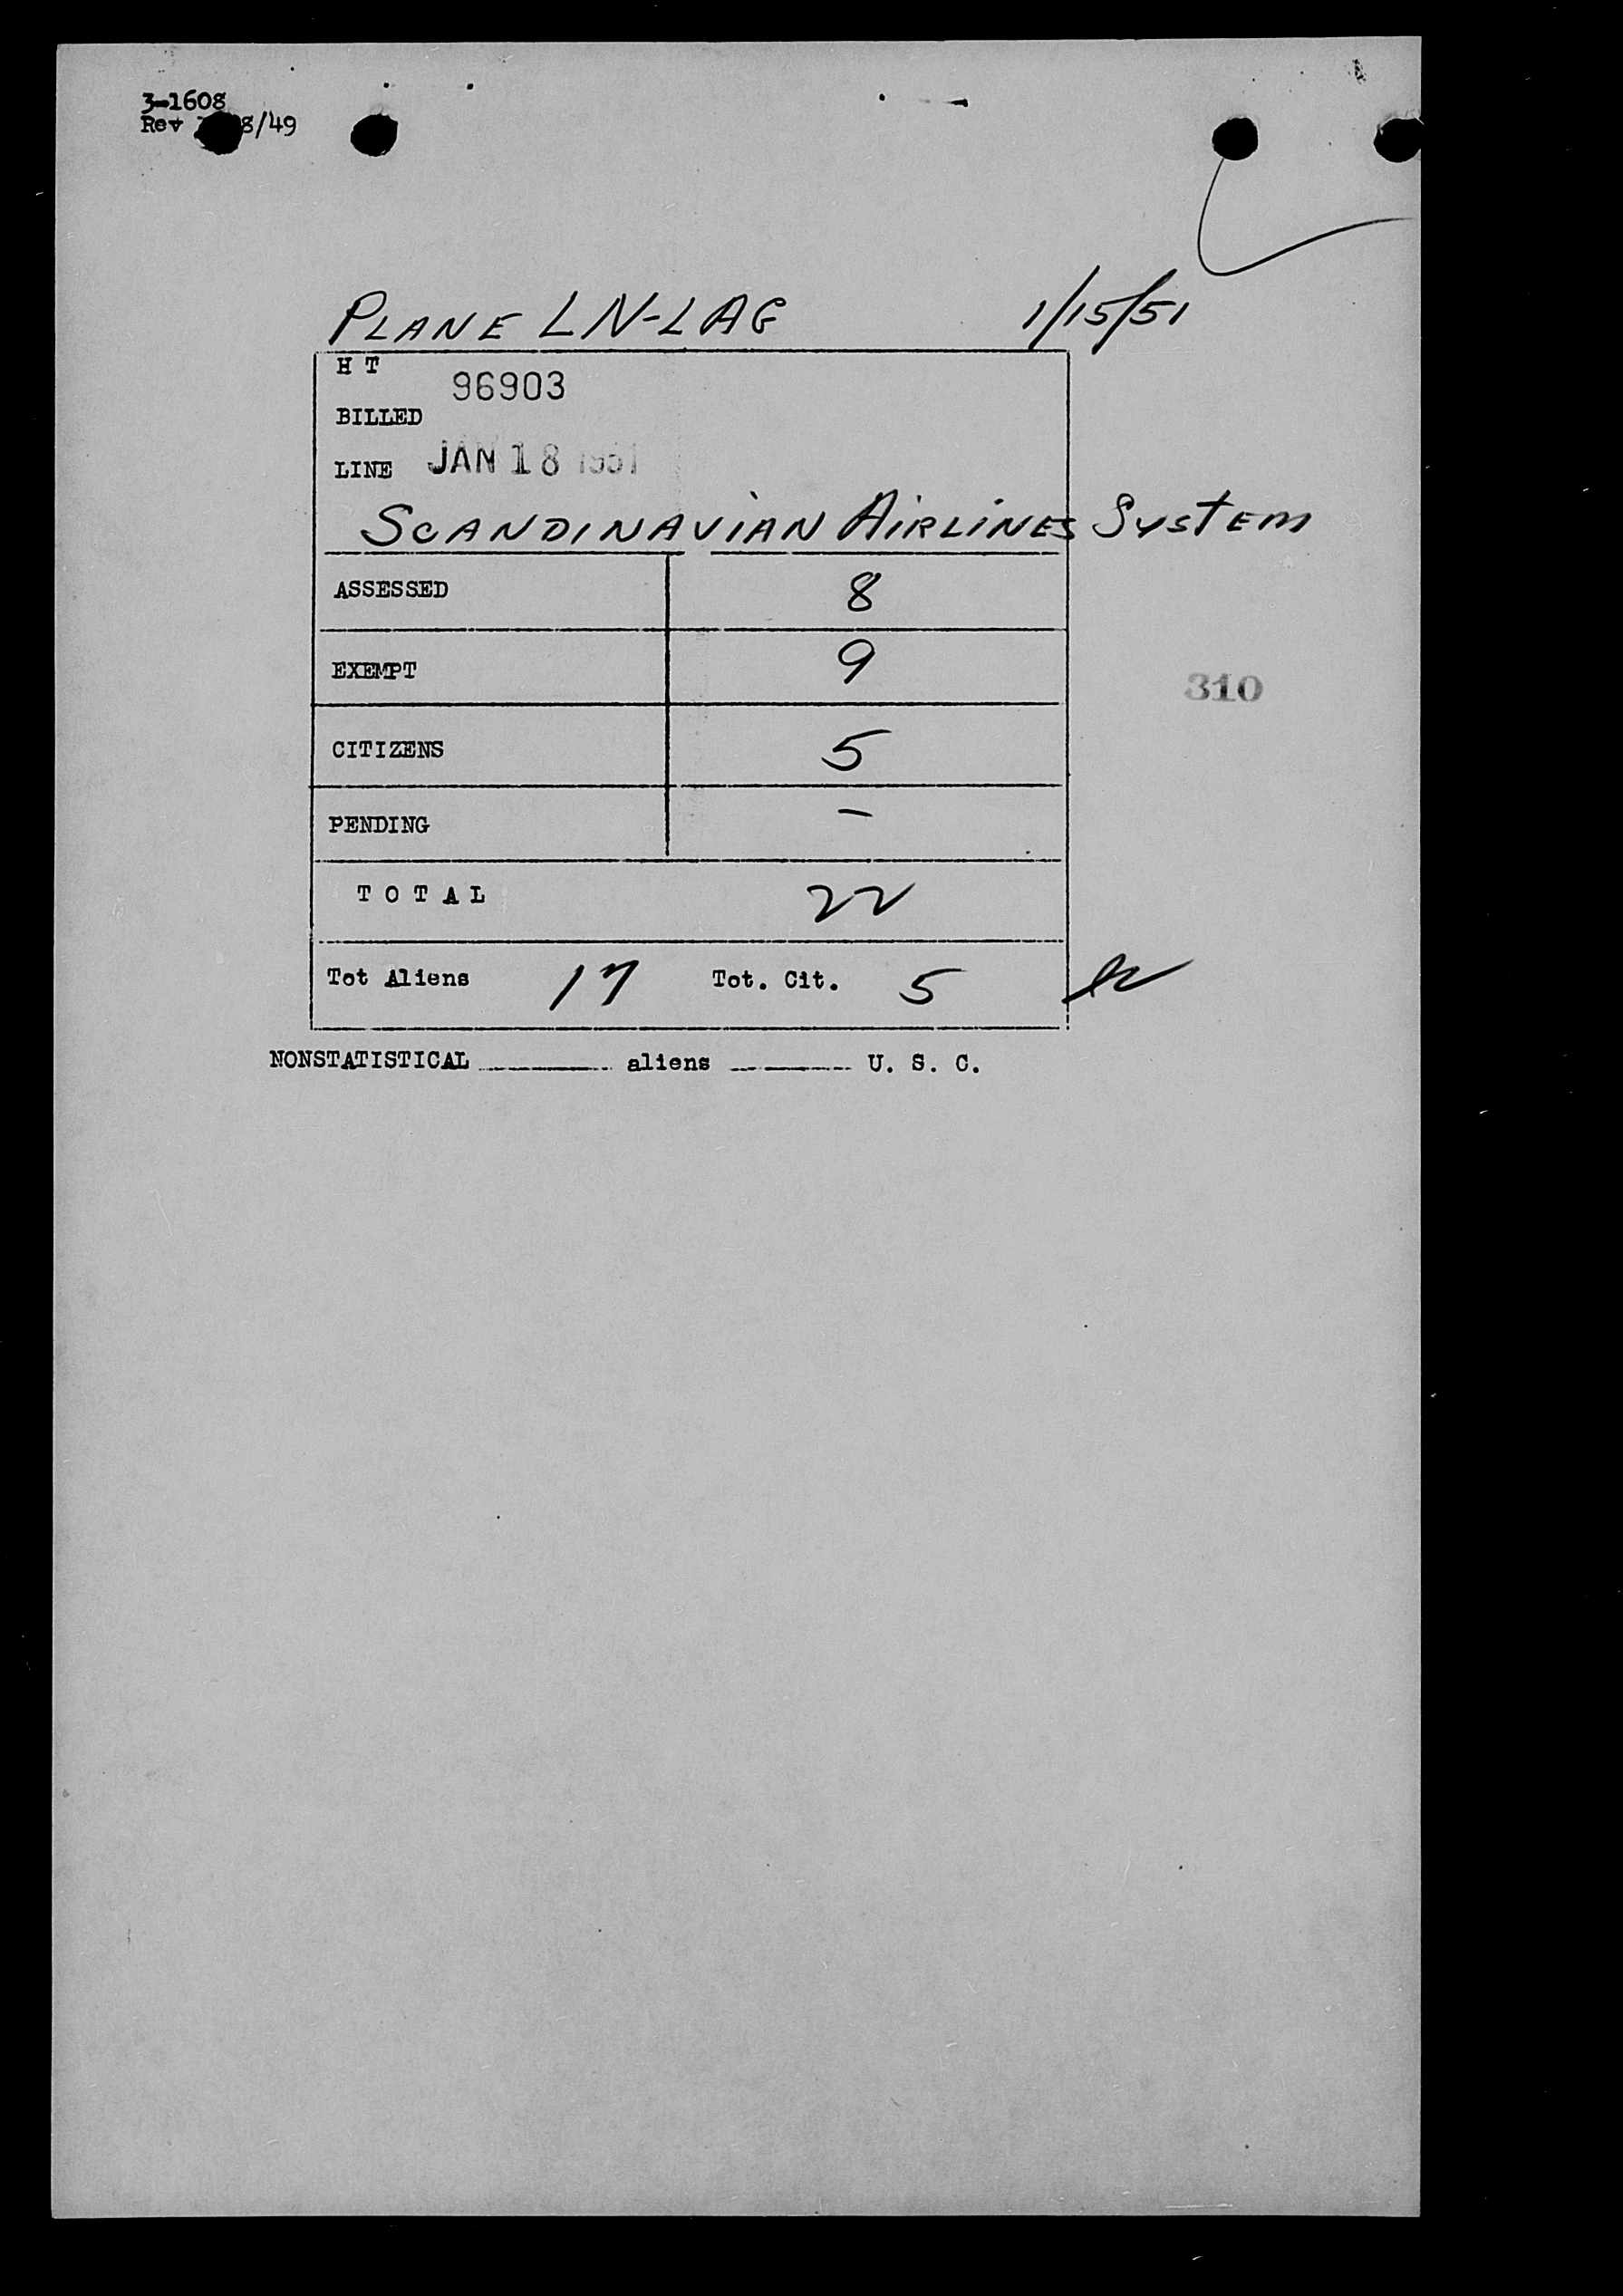 3-1608
Rev 8/49
PLANE LN-LAG 1/15/51
H T
96903
BILLED
LINE JAN 18 1951
SCANDINAVIAN AIRLINES SYSTEM
ASSESSED 8
EXEMPT 9
310
CITIZENS 5
PENDING -
T O T A L 22
Tot Aliens 17 Tot. Cit. 5
NONSTATISTICAL ______ aliens ______ U. S. C.